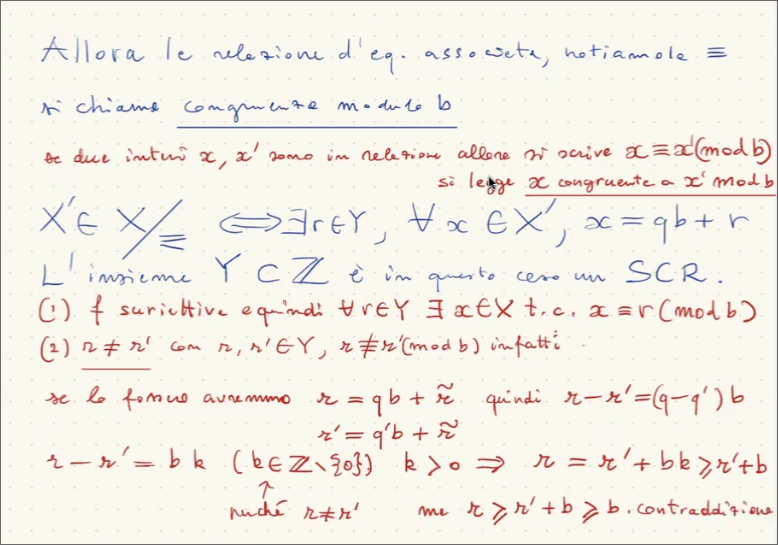 Allora la relazione d'eq. associata, notiamola ≡
si chiama congruenza modulo b
se due interi x, x' sono in relazione allora si scrive x ≡ x' (mod b)
si legge x congruente a x' mod b
X' ∈ X/≡ ⟺ ∃ r ∈ Y, ∀ x ∈ X', x = qb + r
L'insieme Y ⊂ ℤ è in questo caso un SCR.
(1) f suriettiva e quindi ∀ r ∈ Y ∃ x ∈ X t.c. x ≡ r (mod b)
(2) r ≠ r' con r, r' ∈ Y, r ≢ r' (mod b) infatti
se lo fossero avremmo r = qb + r̃ quindi r - r' = (q - q') b
r' = q'b + r̃
r - r' = b k (k ∈ ℤ \ {0}) k > 0 ⇒ r = r' + bk ⩾ r' + b
↑
perché r ≠ r' ma r ⩾ r' + b ⩾ b. contraddizione